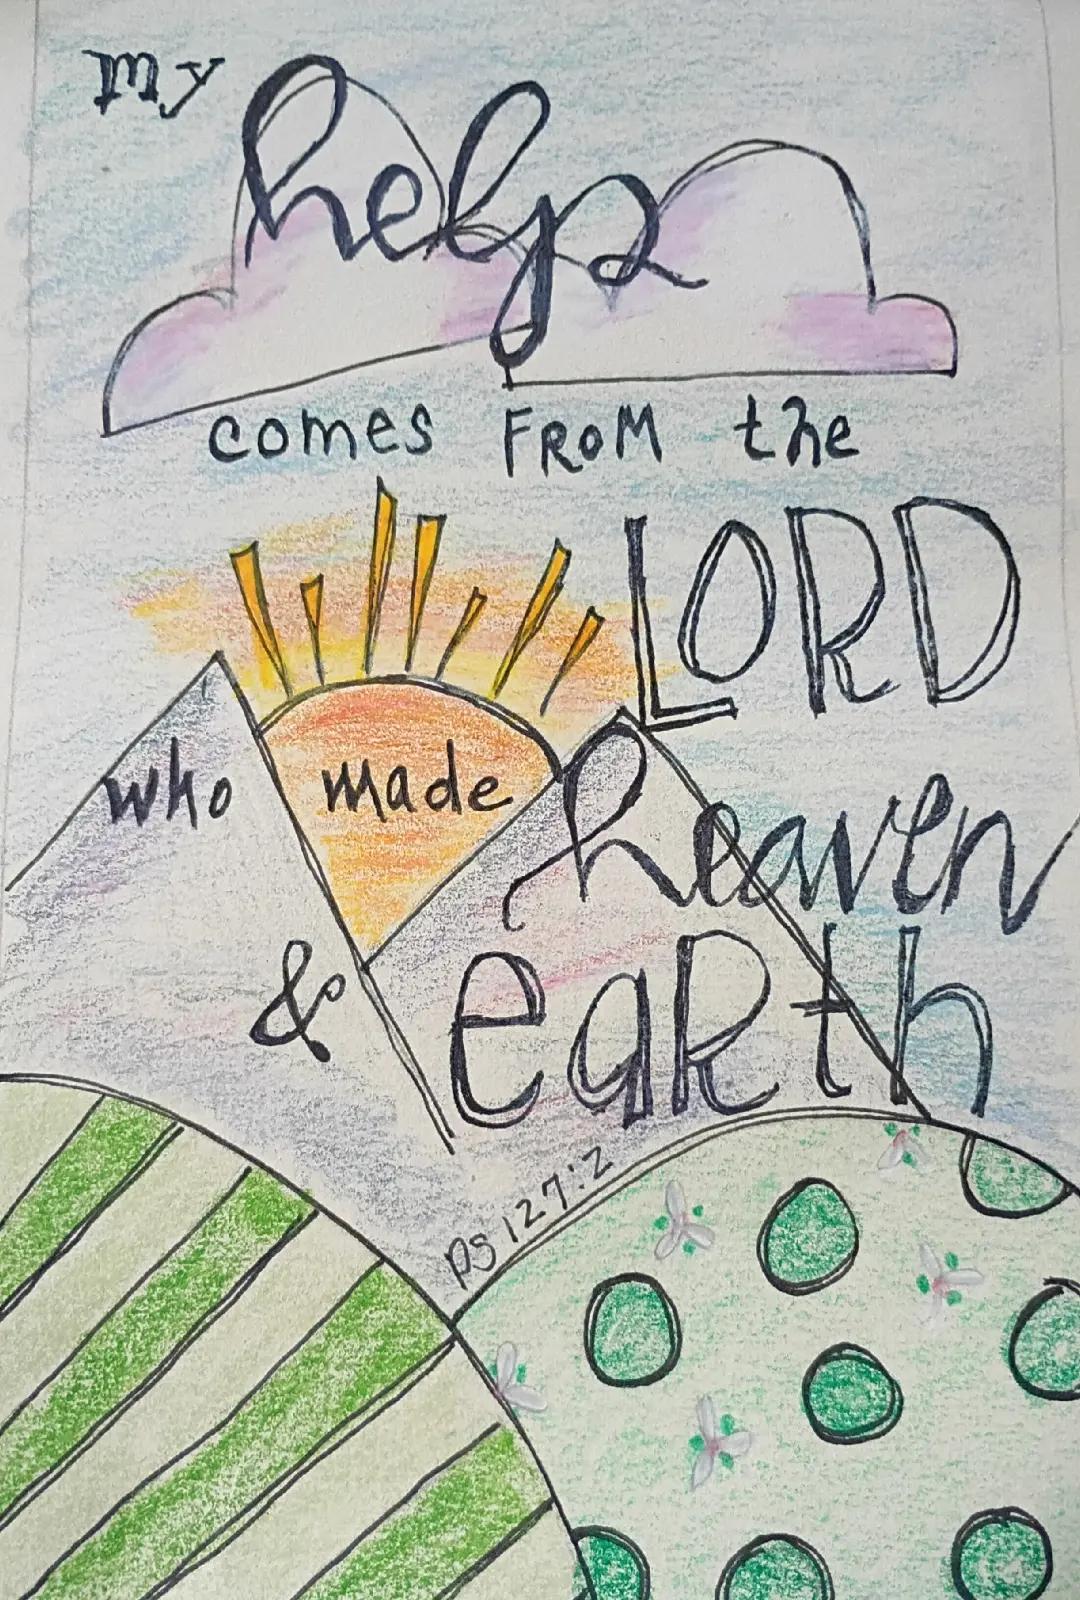 my
help
comes FROM the
LORD
who made heaven
& eaRth
PS 127:2